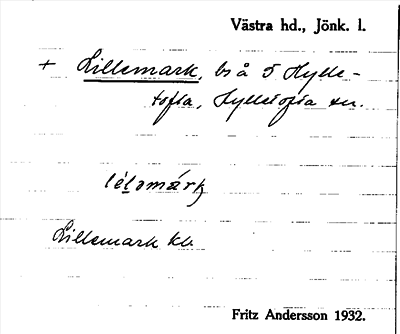 Västra hd., Jönk. l.
+ Lillemark, bs å 5 Hylle-
tofta, Hylletofta sn.
Lillemark kb
Fritz Andersson 1932.